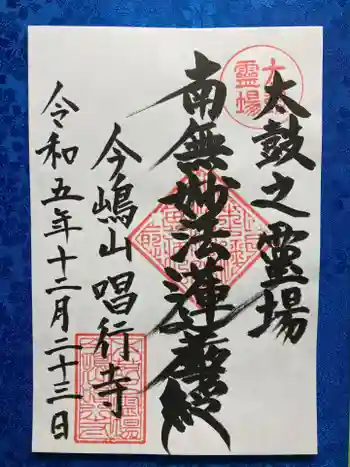 太鼓之靈場
南無妙法蓮華経
今嶋山唱行寺
令和五年十二月二十三日